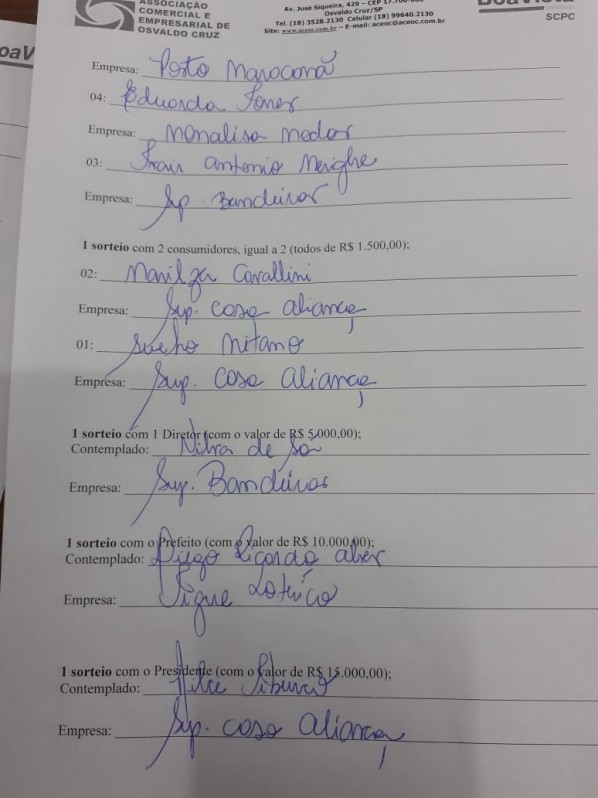 ASSOCIAÇÃO
COMERCIAL E
EMPRESARIAL DE
OSVALDO CRUZ
Av. José Siqueira, 429 – CEP 17.700-000
Osvaldo Cruz/SP
Tel. (18) 3528.2130 Celular (18) 99640.2130
Site: www.aceoc.com.br – E-mail: aceoc@aceoc.com.br
BoaVista
SCPC
Empresa: Posto Maracanã
04: Eduarda
Empresa: Monalisa Modas
03: Antonio
Empresa: Sup. Bandeiras
1 sorteio com 2 consumidores, igual a 2 (todos de R$ 1.500,00);
02: Marilza Cavallini
Empresa: Sup. Casa Aliança
01: Mitano
Empresa: Sup. Casa Aliança
1 sorteio com 1 Diretor (com o valor de R$ 5.000,00);
Contemplado: de Sá
Empresa: Sup. Bandeiras
1 sorteio com o Prefeito (com o valor de R$ 10.000,00);
Contemplado: Diego Ricardo
Empresa: Lotérica
1 sorteio com o Presidente (com o valor de R$ 15.000,00);
Contemplado:
Empresa: Sup. Casa Aliança